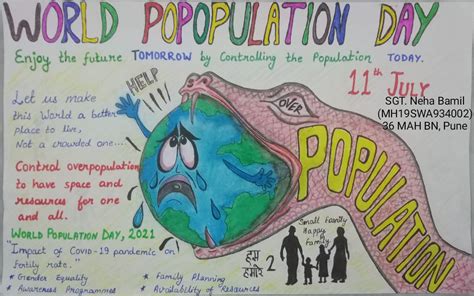 WORLD POPOPULATION DAY
Enjoy the future TOMORROW by Controlling the Population TODAY.
11th July
SGT. Neha Bamil
(MH19SWA934002)
36 MAH BN, Pune
HELP
OVER
POPULATION
Let us make
this World a better
place to live,
Not a crowded one...
Control overpopulation
to have space and
resources for one
and all.
WORLD POPULATION DAY, 2021
"Impact of Covid-19 pandemic on
fertily rate.."
* Gender Equality
* Awareness Programmes
* Family Planning
* Availability of Resources
Small Family
Happy
Family
हम 2
हमारे